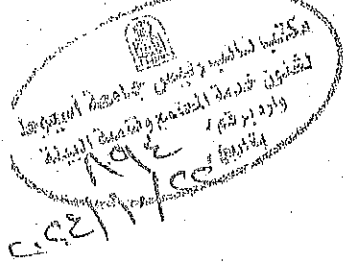 مكتب نائب رئيس جامعة أسيوط
لشئون خدمة المجتمع وتنمية البيئة
وارد برقم : ٨٩٤
بتاريخ :